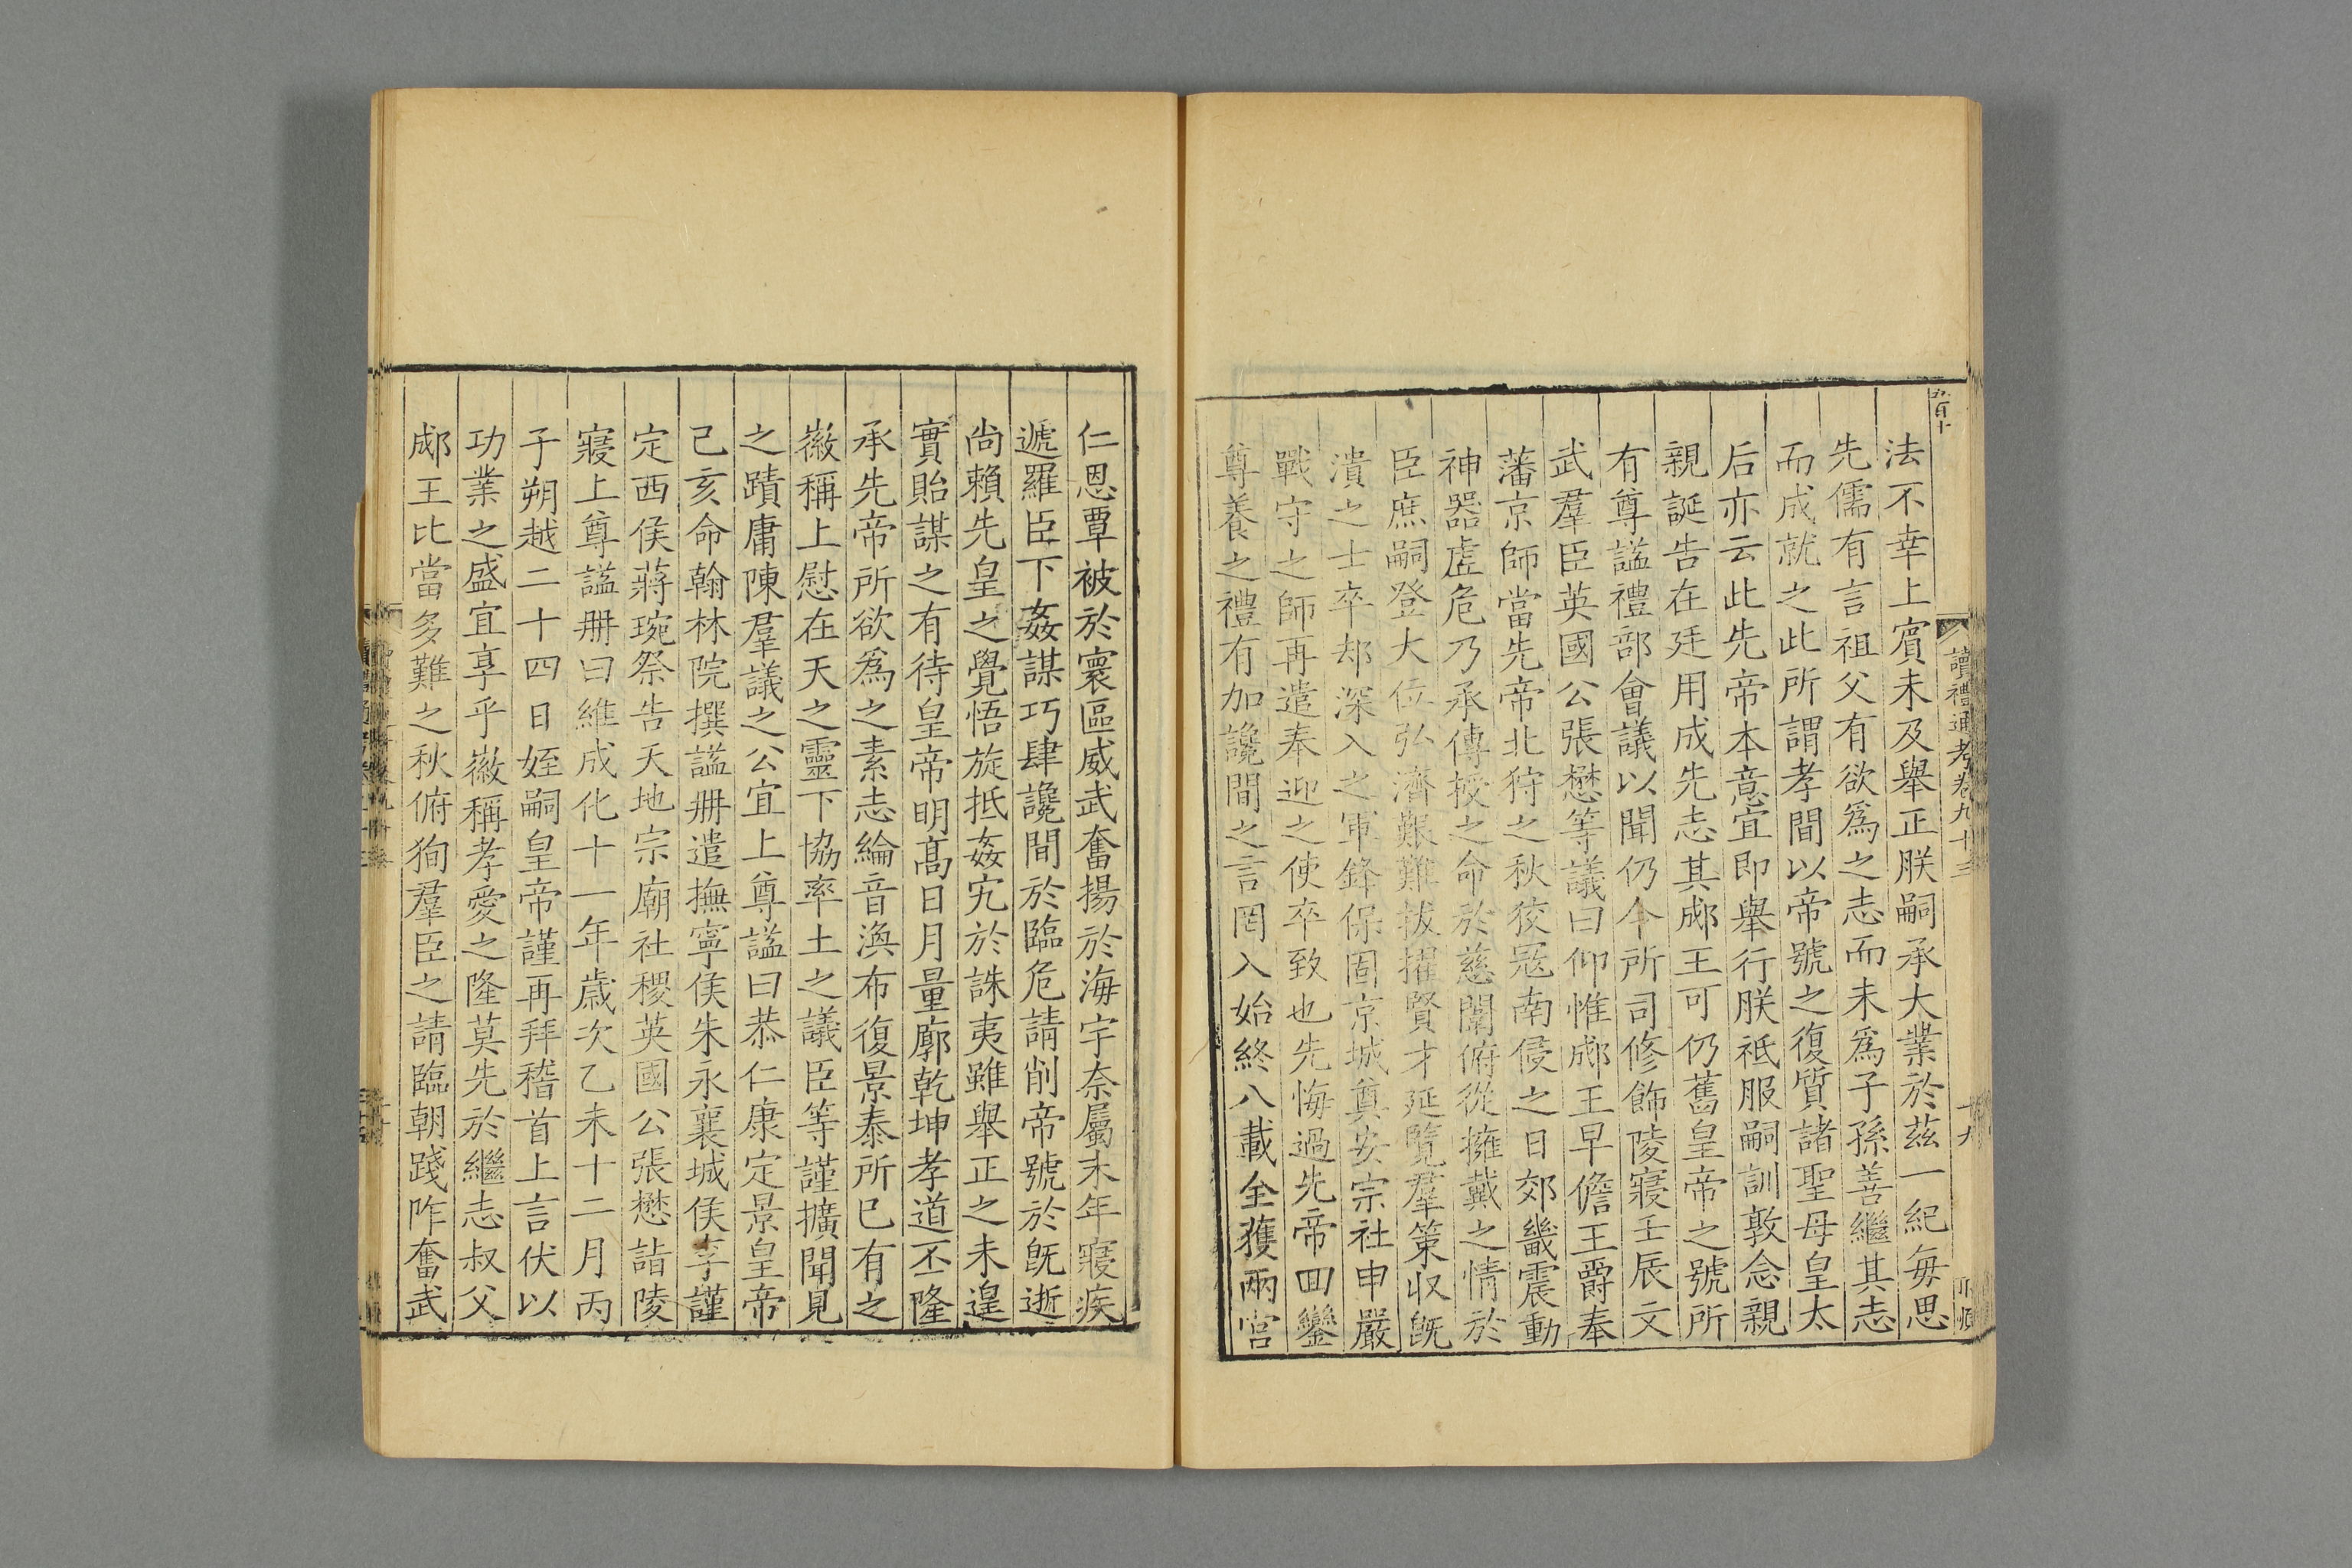 五百十
讀禮通考卷九十三
十九
法不幸上賓未及舉正朕嗣承大業於茲一紀每思
先儒有言祖父有欲爲之志而未爲子孫善繼其志
而成就之此所謂孝間以帝號之復質諸聖母皇太
后亦云此先帝本意宜即舉行朕祗服嗣訓敦念親
親誕告在廷用成先志其郕王可仍舊皇帝之號所
有尊謚禮部會議以聞仍令所司修飾陵寢壬辰文
武羣臣英國公張懋等議曰仰惟郕王早儋王爵奉
藩京師當先帝北狩之秋狡冦南侵之日郊畿震動
神器虛危乃承傳授之命於慈闈俯從擁戴之情於
臣庶嗣登大位弘濟艱難拔擢賢才延覽羣策収旣
潰之士卒却深入之軍鋒保固京城奠安宗社申嚴
戰守之師再遣奉迎之使卒致也先悔過先帝囬鑾
尊養之禮有加讒間之言罔入始終八載全獲兩宮
仁恩覃被於寰區威武奮揚於海宇奈屬末年寢疾
遞羅臣下姦謀巧肆讒間於臨危請削帝號於旣逝
尚賴先皇之覺悟旋抵姦宄於誅夷雖舉正之未遑
實貽謀之有待皇帝明髙日月量廓乾坤孝道丕隆
承先帝所欲爲之素志綸音渙布復景泰所已有之
徽稱上慰在天之靈下協率土之議臣等謹擴聞見
之蹟庸陳羣議之公宜上尊謚曰恭仁康定景皇帝
己亥命翰林院撰謚冊遣撫寧侯朱永襄城侯李謹
定西侯蔣琬祭告天地宗廟社稷英國公張懋詣陵
寢上尊謚冊曰維成化十一年歲次乙未十二月丙
子朔越二十四日姪嗣皇帝謹再拜稽首上言伏以
功業之盛宜享乎徽稱孝愛之隆莫先於繼志叔父
郕王比當多難之秋俯狥羣臣之請臨朝踐阼奮武